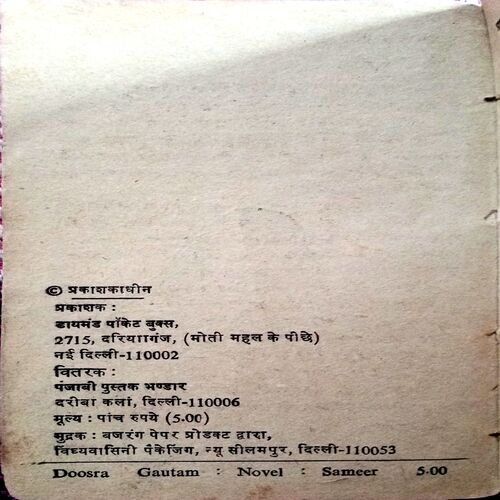 © प्रकाशकाधीन
प्रकाशक :
डायमंड पॉकेट बुक्स,
2715, दरियाागंज, (मोती महल के पीछे)
नई दिल्ली-110002
वितरक :
पंजाबी पुस्तक भण्डार
दरीबा कलां, दिल्ली-110006
मूल्य : पांच रुपये (5.00)
मुद्रक : बजरंग पेपर प्रोडक्ट द्वारा,
विंध्यवासिनी पैकेजिंग, न्यू सीलमपुर, दिल्ली-110053
Doosra Gautam : Novel : Sameer 5.00